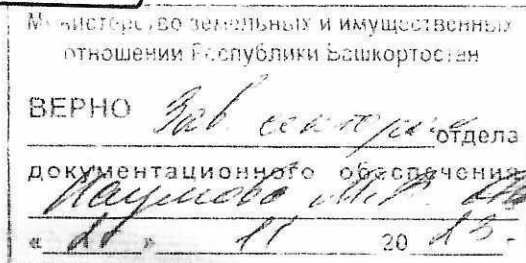 Министерство земельных и имущественных
отношений Республики Башкортостан
ВЕРНО Зав. сектором отдела
документационного обеспечения
Наумова
« » 11 20 13